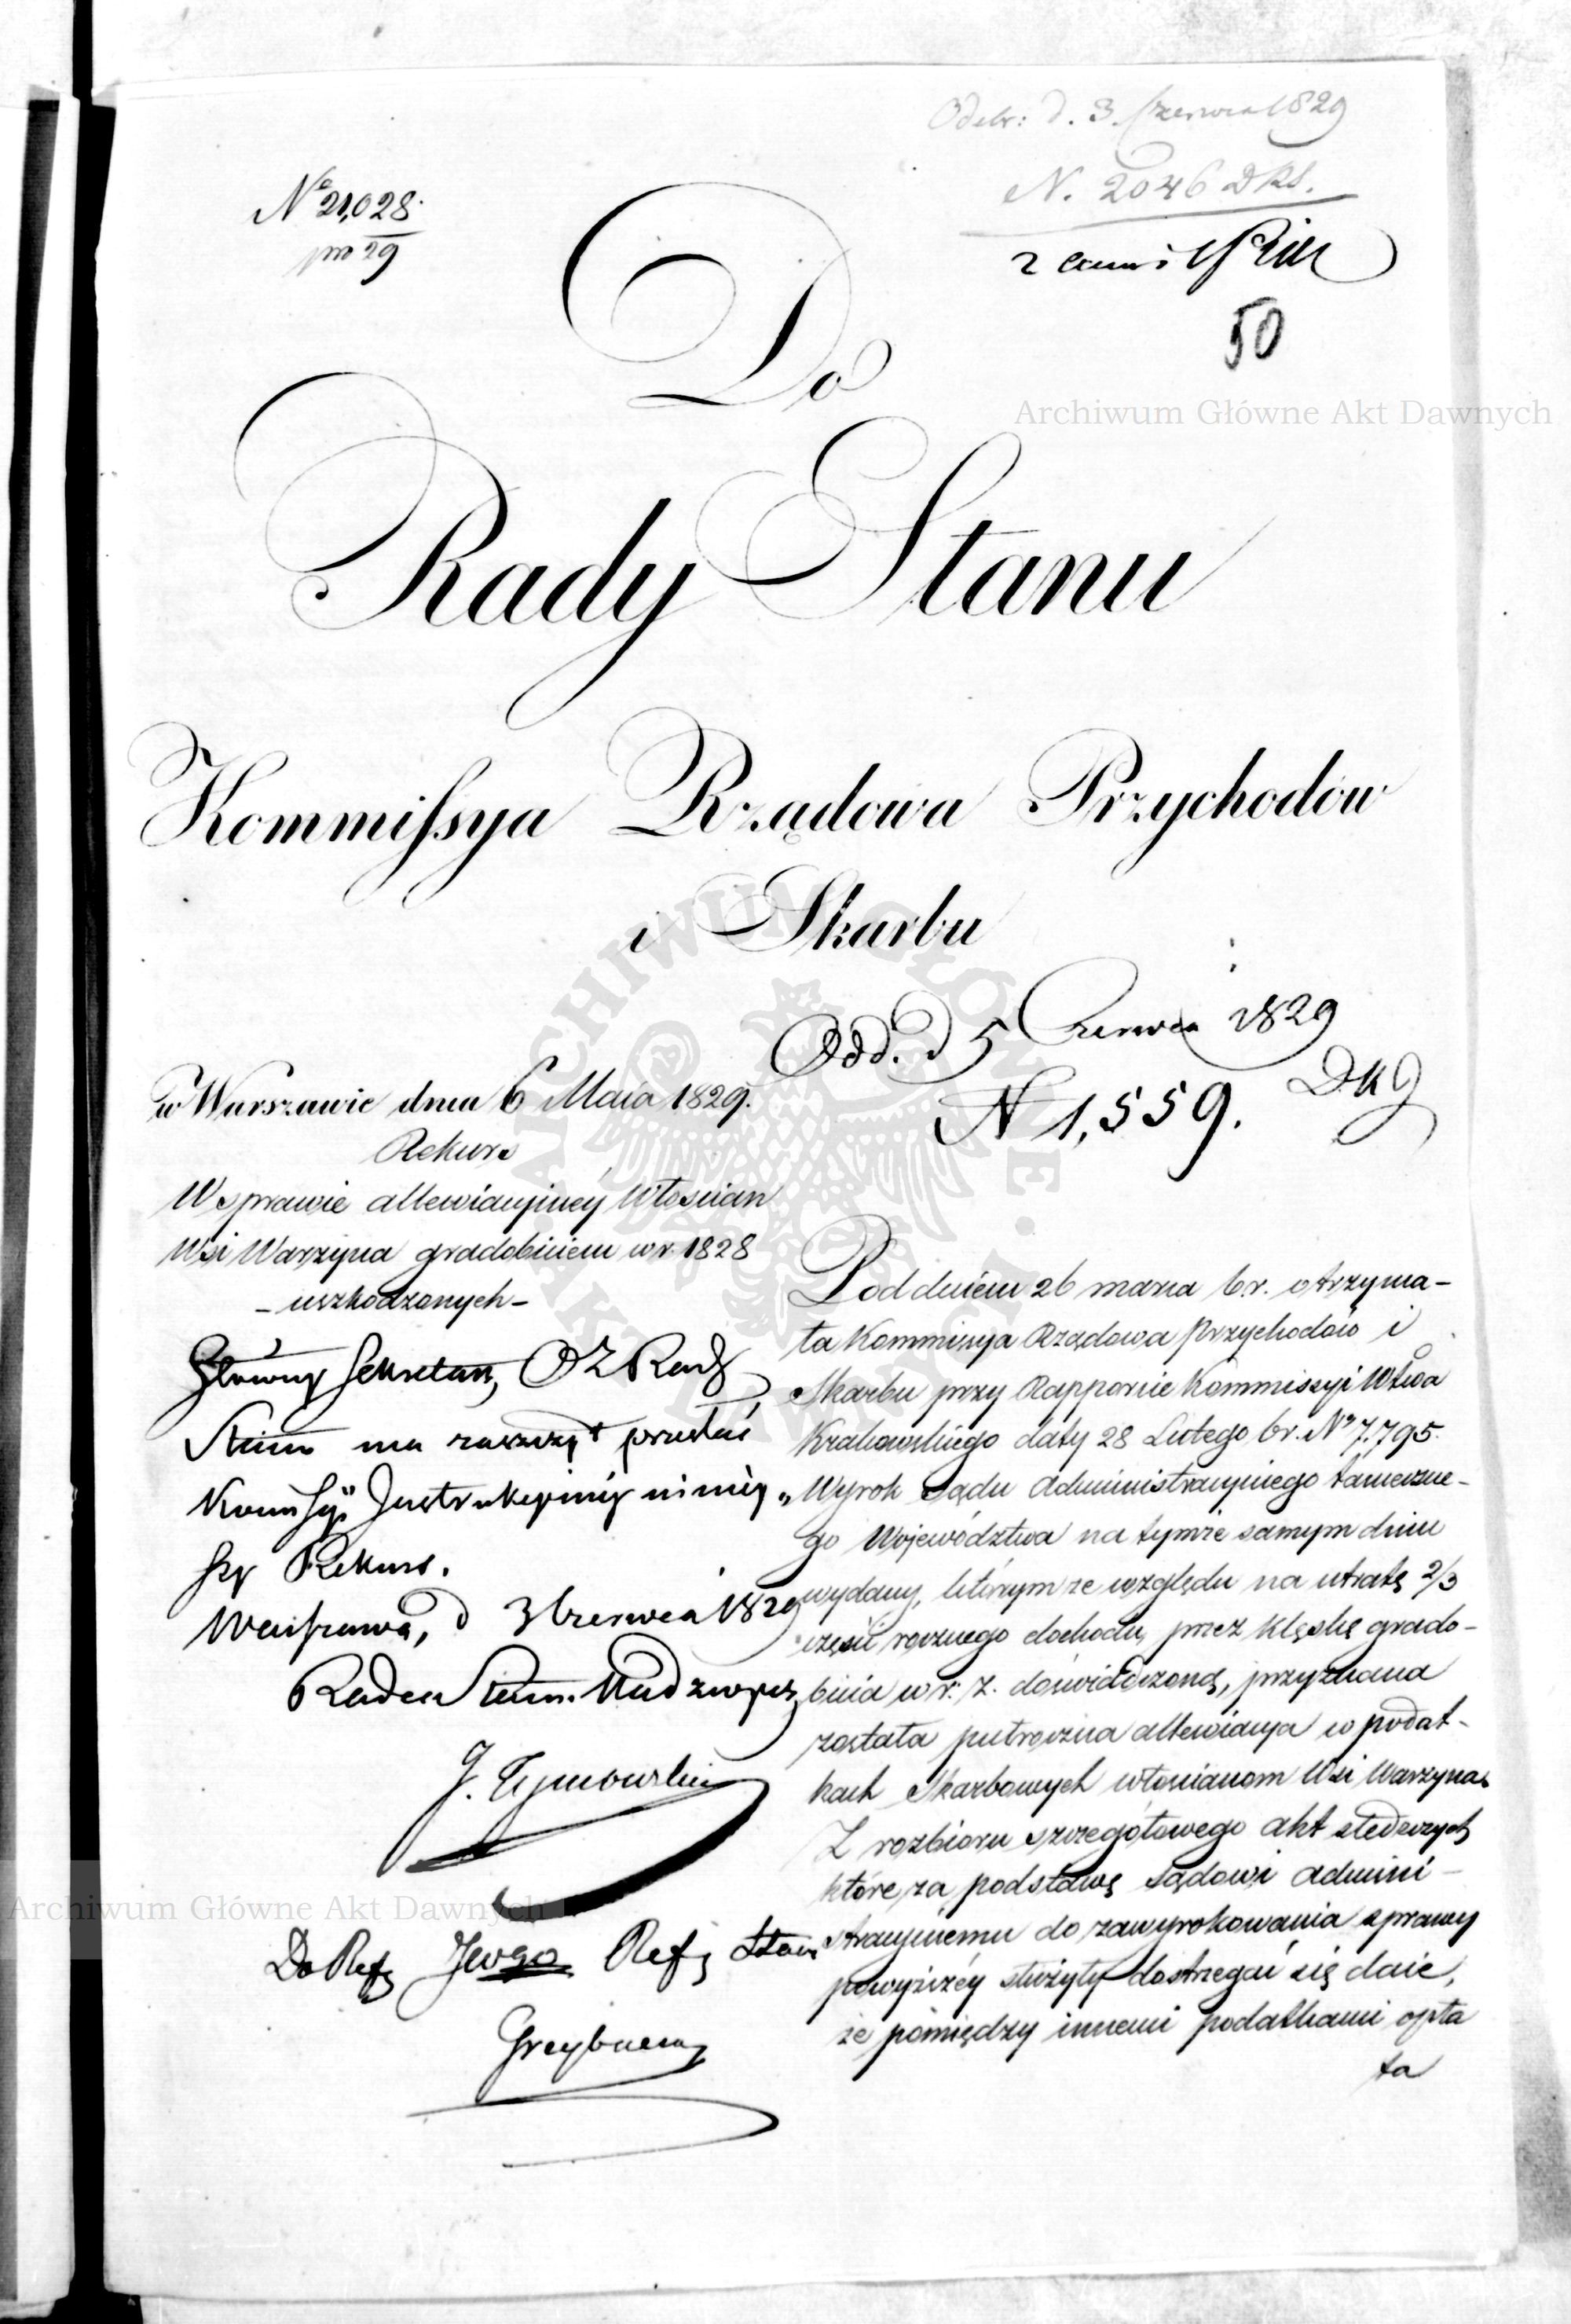 Odebr: d. 3. Czerwca 1829
N. 2046 DKS.
No 21,028.
pro 29
50
Archiwum Główne Akt Dawnych
Do
Rady Stanu
Kommissya Rządowa Przychodów
i Skarbu
Odd. d 5 Czerwca 1829
N 1,559. DKJ
w Warszawie dnia 6 Maia 1829.
Rekurs
W sprawie allewiacyjnéy Włościan
Wsi Warzyna gradobiciem w r. 1828
- uszkodzonych -
Główny Sekretarz Rady
Stanu ma zaszczyt przesłać
Kommissyi Instrukcyinéy niniey„
szy Rekurs.
Warszawa, d 3 Czerwca 1829
Radca Stanu Nadzwycz
J. Tymowski
Do Ref Jwgo Ref Stanu
Pod dniem 26 marca b.r. otrzyma-
ła Kommissya Rządowa Przychodów i
Skarbu przy Rapporcie Kommissyi Wtwa
Krakowskiego daty 28 Lutego br. No 7.795.
Wyrok Sądu Administracyinego tameczne-
go Województwa na tymże samym dniu
wydany, którym ze względu na utratę 2/3
części rocznego dochodu, przez klęskę grado-
bicia w r: z. doświadczoną, przyznana
została półroczna allewiacya w podat-
kach Skarbowych włościanom Wsi Warzyna.
Z rozbioru szczegółowego akt śledczych
które za podstawę Sądowi Admini-
stracyinemu do zawyrokowania sprawy
powyższéy służyły dostrzegać się daie,
że pomiędzy innemi podatkami opła
ta
Archiwum Główne Akt Dawnych